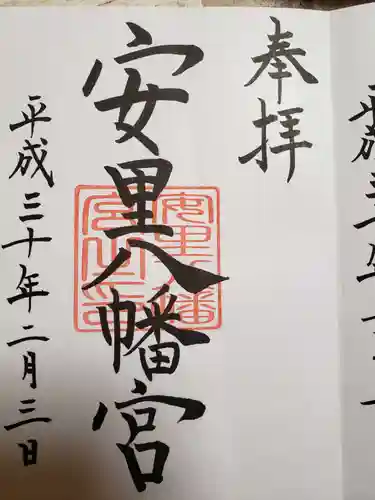 奉拝
安里八幡宮
平成三十年二月三日
安里八幡
宮之印